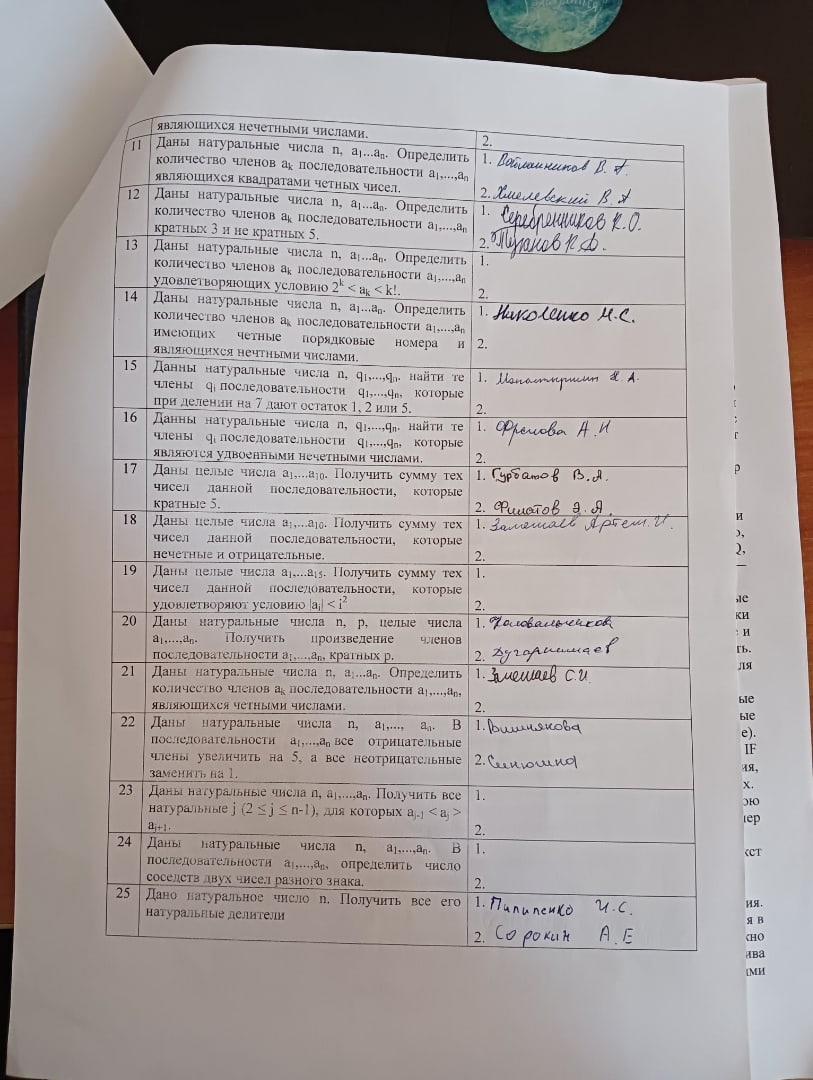 являющихся нечетными числами.
2.
11 Даны натуральные числа n, a₁...aₙ. Определить
количество членов aₖ последовательности a₁,...,aₙ
являющихся квадратами четных чисел.
1. В. А.
2. Хмелевский В. А
12 Даны натуральные числа n, a₁...aₙ. Определить
количество членов aₖ последовательности a₁,...,aₙ
кратных 3 и не кратных 5.
1. Серебренников К.О.
2. К.Д.
13 Даны натуральные числа n, a₁...aₙ. Определить
количество членов aₖ последовательности a₁,...,aₙ
удовлетворяющих условию 2ᵏ < aₖ < k!.
1.
2.
14 Даны натуральные числа n, a₁...aₙ. Определить
количество членов aₖ последовательности a₁,...,aₙ
имеющих четные порядковые номера и
являющихся нечтными числами.
1. Николенко М.С.
2.
15 Данны натуральные числа n, q₁,...,qₙ. найти те
члены qᵢ последовательности q₁,...,qₙ, которые
при делении на 7 дают остаток 1, 2 или 5.
1. А.
2.
16 Данны натуральные числа n, q₁,...,qₙ. найти те
члены qᵢ последовательности q₁,...,qₙ, которые
являются удвоенными нечетными числами.
1. Фролова А. И
2.
17 Даны целые числа a₁,...a₁₀. Получить сумму тех
чисел данной последовательности, которые
кратные 5.
1. Гурбатов В.А.
2. Филатов Э.А.
18 Даны целые числа a₁,...a₁₀. Получить сумму тех
чисел данной последовательности, которые
нечетные и отрицательные.
1. Замешаев Артем.И.
2.
19 Даны целые числа a₁,...a₁₅. Получить сумму тех
чисел данной последовательности, которые
удовлетворяют условию |aⱼ| < i²
1.
2.
20 Даны натуральные числа n, p, целые числа
a₁,...,aₙ. Получить произведение членов
последовательности a₁,...,aₙ, кратных p.
1.
2.
21 Даны натуральные числа n, a₁...aₙ. Определить
количество членов aₖ последовательности a₁,...,aₙ,
являющихся четными числами.
1. Замешаев С.И.
2.
22 Даны натуральные числа n, a₁,..., aₙ. В
последовательности a₁,...,aₙ все отрицательные
члены увеличить на 5, а все неотрицательные
заменить на 1.
1. Вишнякова
2. Синюшкина
23 Даны натуральные числа n, a₁,...,aₙ. Получить все
натуральные j (2 ≤ j ≤ n-1), для которых aⱼ₋₁ < aⱼ >
aⱼ₊₁.
1.
2.
24 Даны натуральные числа n, a₁,...,aₙ. В
последовательности a₁,...,aₙ, определить число
соседств двух чисел разного знака.
1.
2.
25 Дано натуральное число n. Получить все его
натуральные делители
1. Пилипенко И.С.
2. Сорокин А.Е